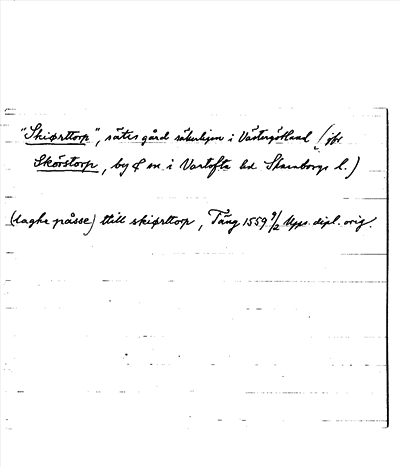 "Skiørttorp", sätesgård säkerligen i Västergötland (jfr
Skörstorp, by o sn i Vartofta hd Skaraborgs l.)
(laghe påsse) ttill skiørttorp, Tång 1559 9/2 Upps. dipl. orig.